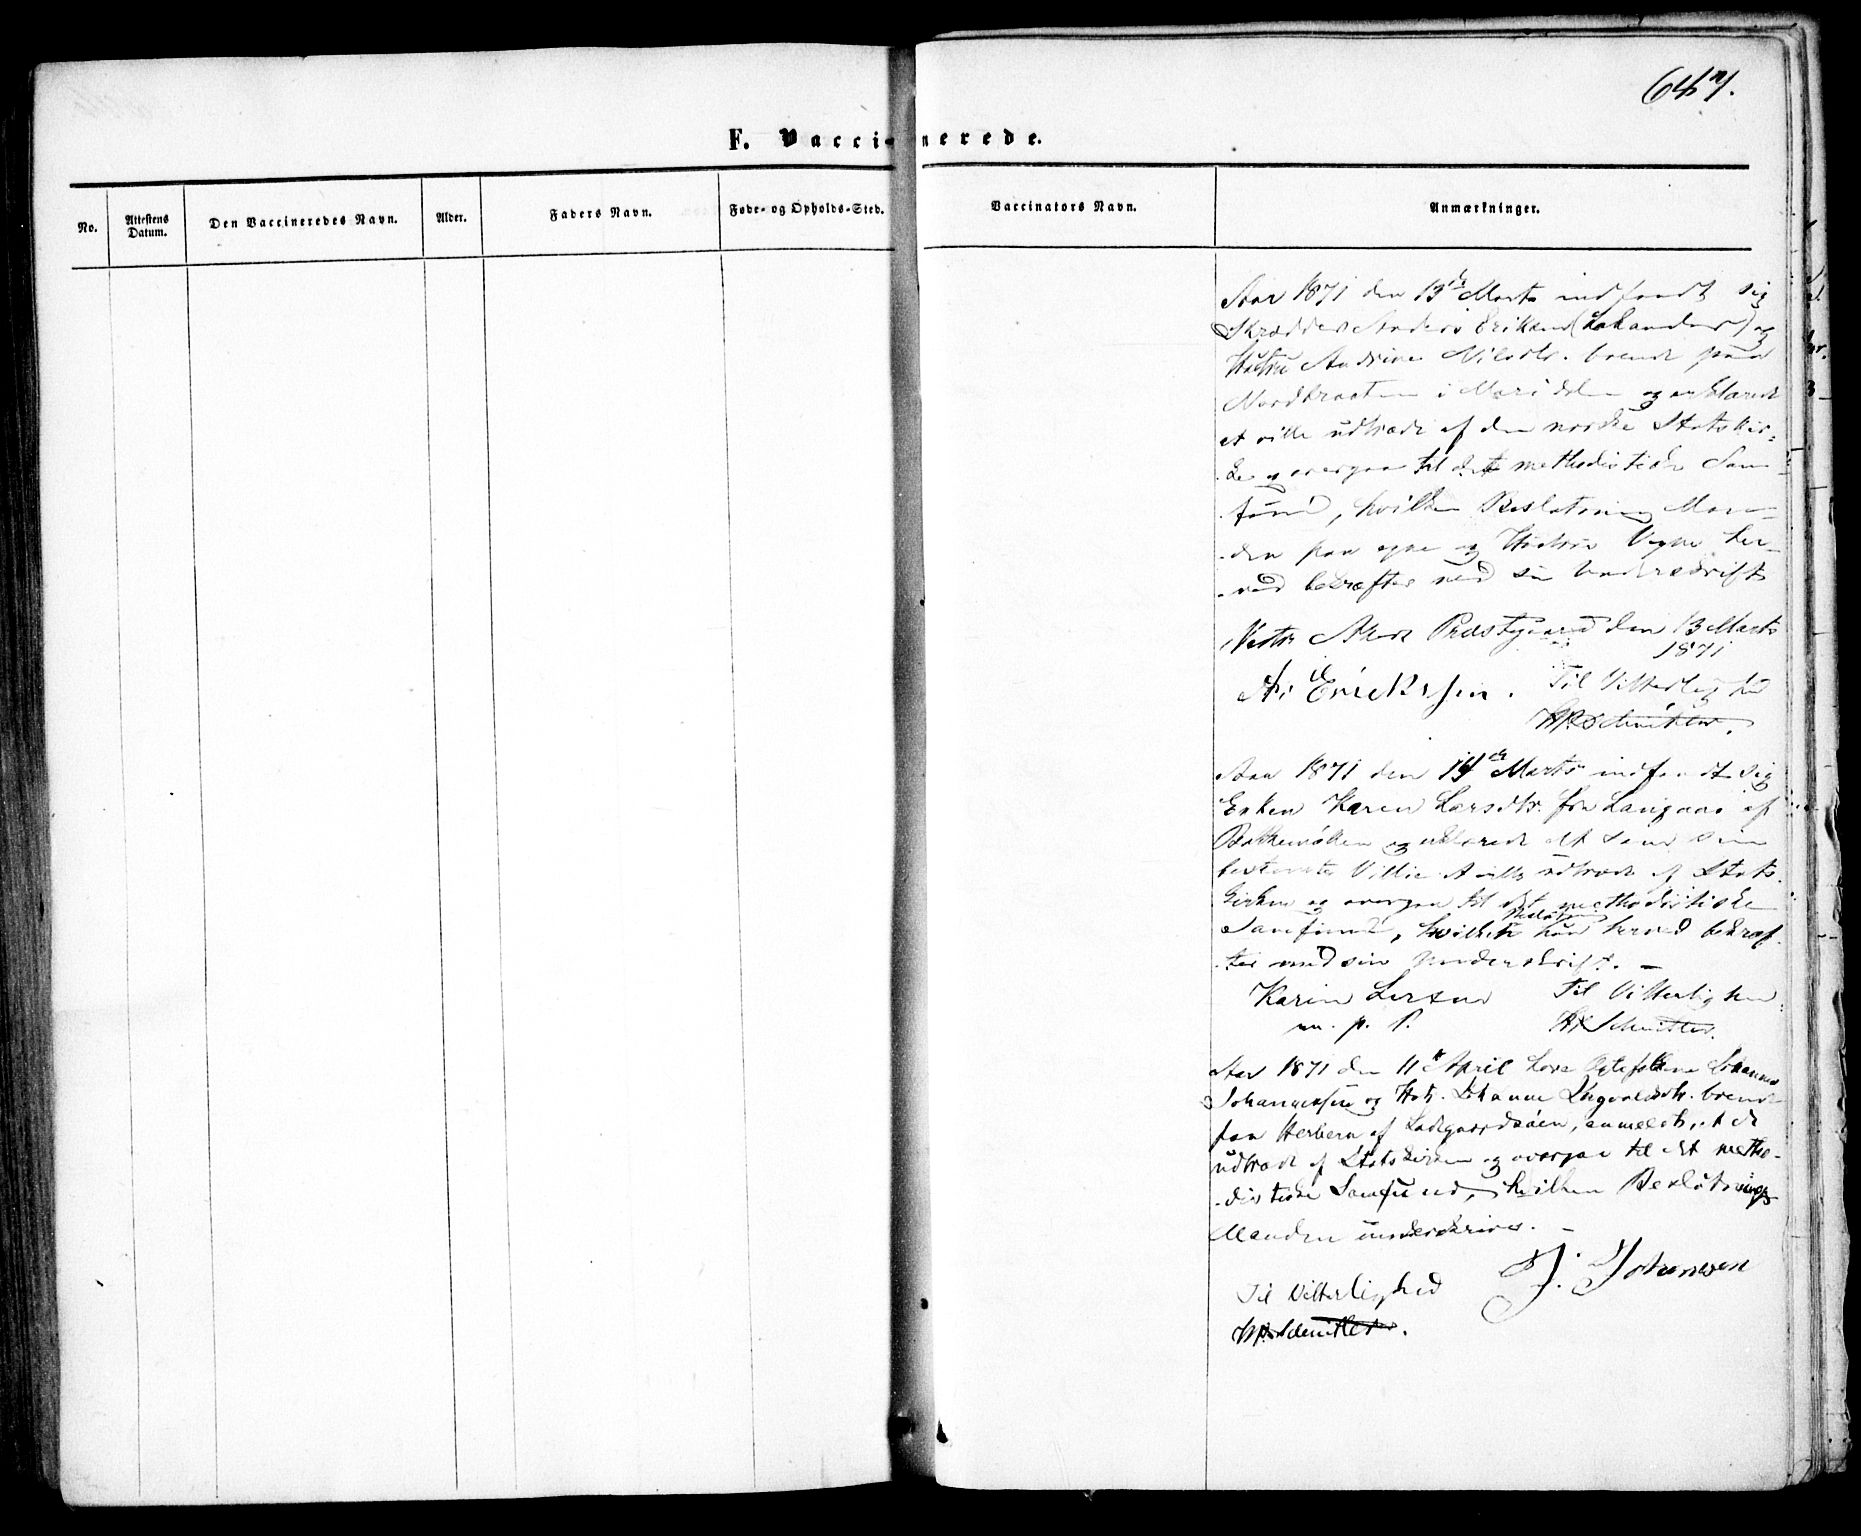 647.
F. Vaccinerede.
No.
Attestens Datum.
Den Vaccineredes Navn.
Alder.
Faders Navn.
Føde- og Opholds-Sted.
Vaccinators Navn.
Anmærkninger.
Aar 1871 den 13de Marts indfandt sig
Skrædder Anders Eriksen () og
Hustru Andrine Nilsdtr. boende paa
Nordbraaten i Maridalen og erklærede
at ville udtræde af den norske Statskir-
ke og overgaa til det methodistiske Sam-
fund, hvilken Beslutning Man-
den paa egne og Hustrus Vegne her-
ved bekræfter med sin Underskrift
Vestre Akers Præstegaard den 13 Marts
1871
A. Erickssen. Til Vitterlighed
W. Schnitler.
Aar 1871 den 14de Marts indfandt sig
Enken Karen Larsdtr. fra Langaas af
Bakkemølken og erklærede det som sin
bestemte Villie at ville udtræde af Stats-
kirken og overgaa til det methodistiske
Samfund, hvilken Beslutning hun herved bekræf-
ter med sin Underskrift. —
Karin Larsen Til Vitterlighed
m. p. P. Schnitler.
Aar 1871 den 11te April have Ægtefolkene Johannes
Johannessen og Hstr. Johanne Ingvaldsdtr. boende
paa Herbern af Ladegaardsøen, anmeldt, at de
udtræde af Statskirken og overgaa til det metho-
distiske Samfund, hvilken Beslutning
Manden underskriver. —
J. Johansen
Til Vitterlighed
Schnitler.